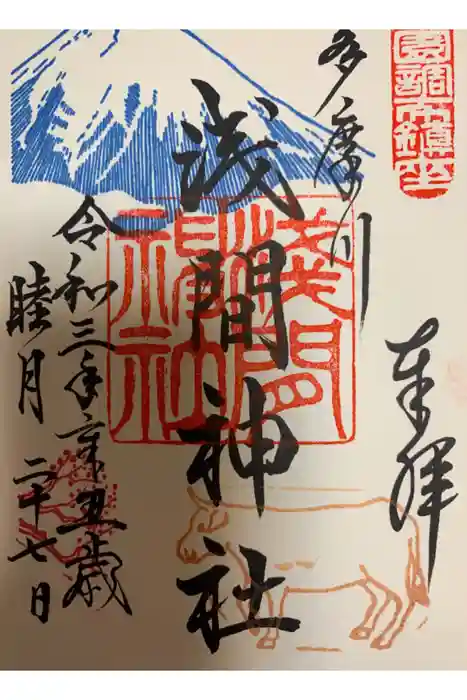 田園調布鎮座
奉拝
多摩川
浅間神社
淺間
神社
令和三年辛丑歳
睦月二十七日